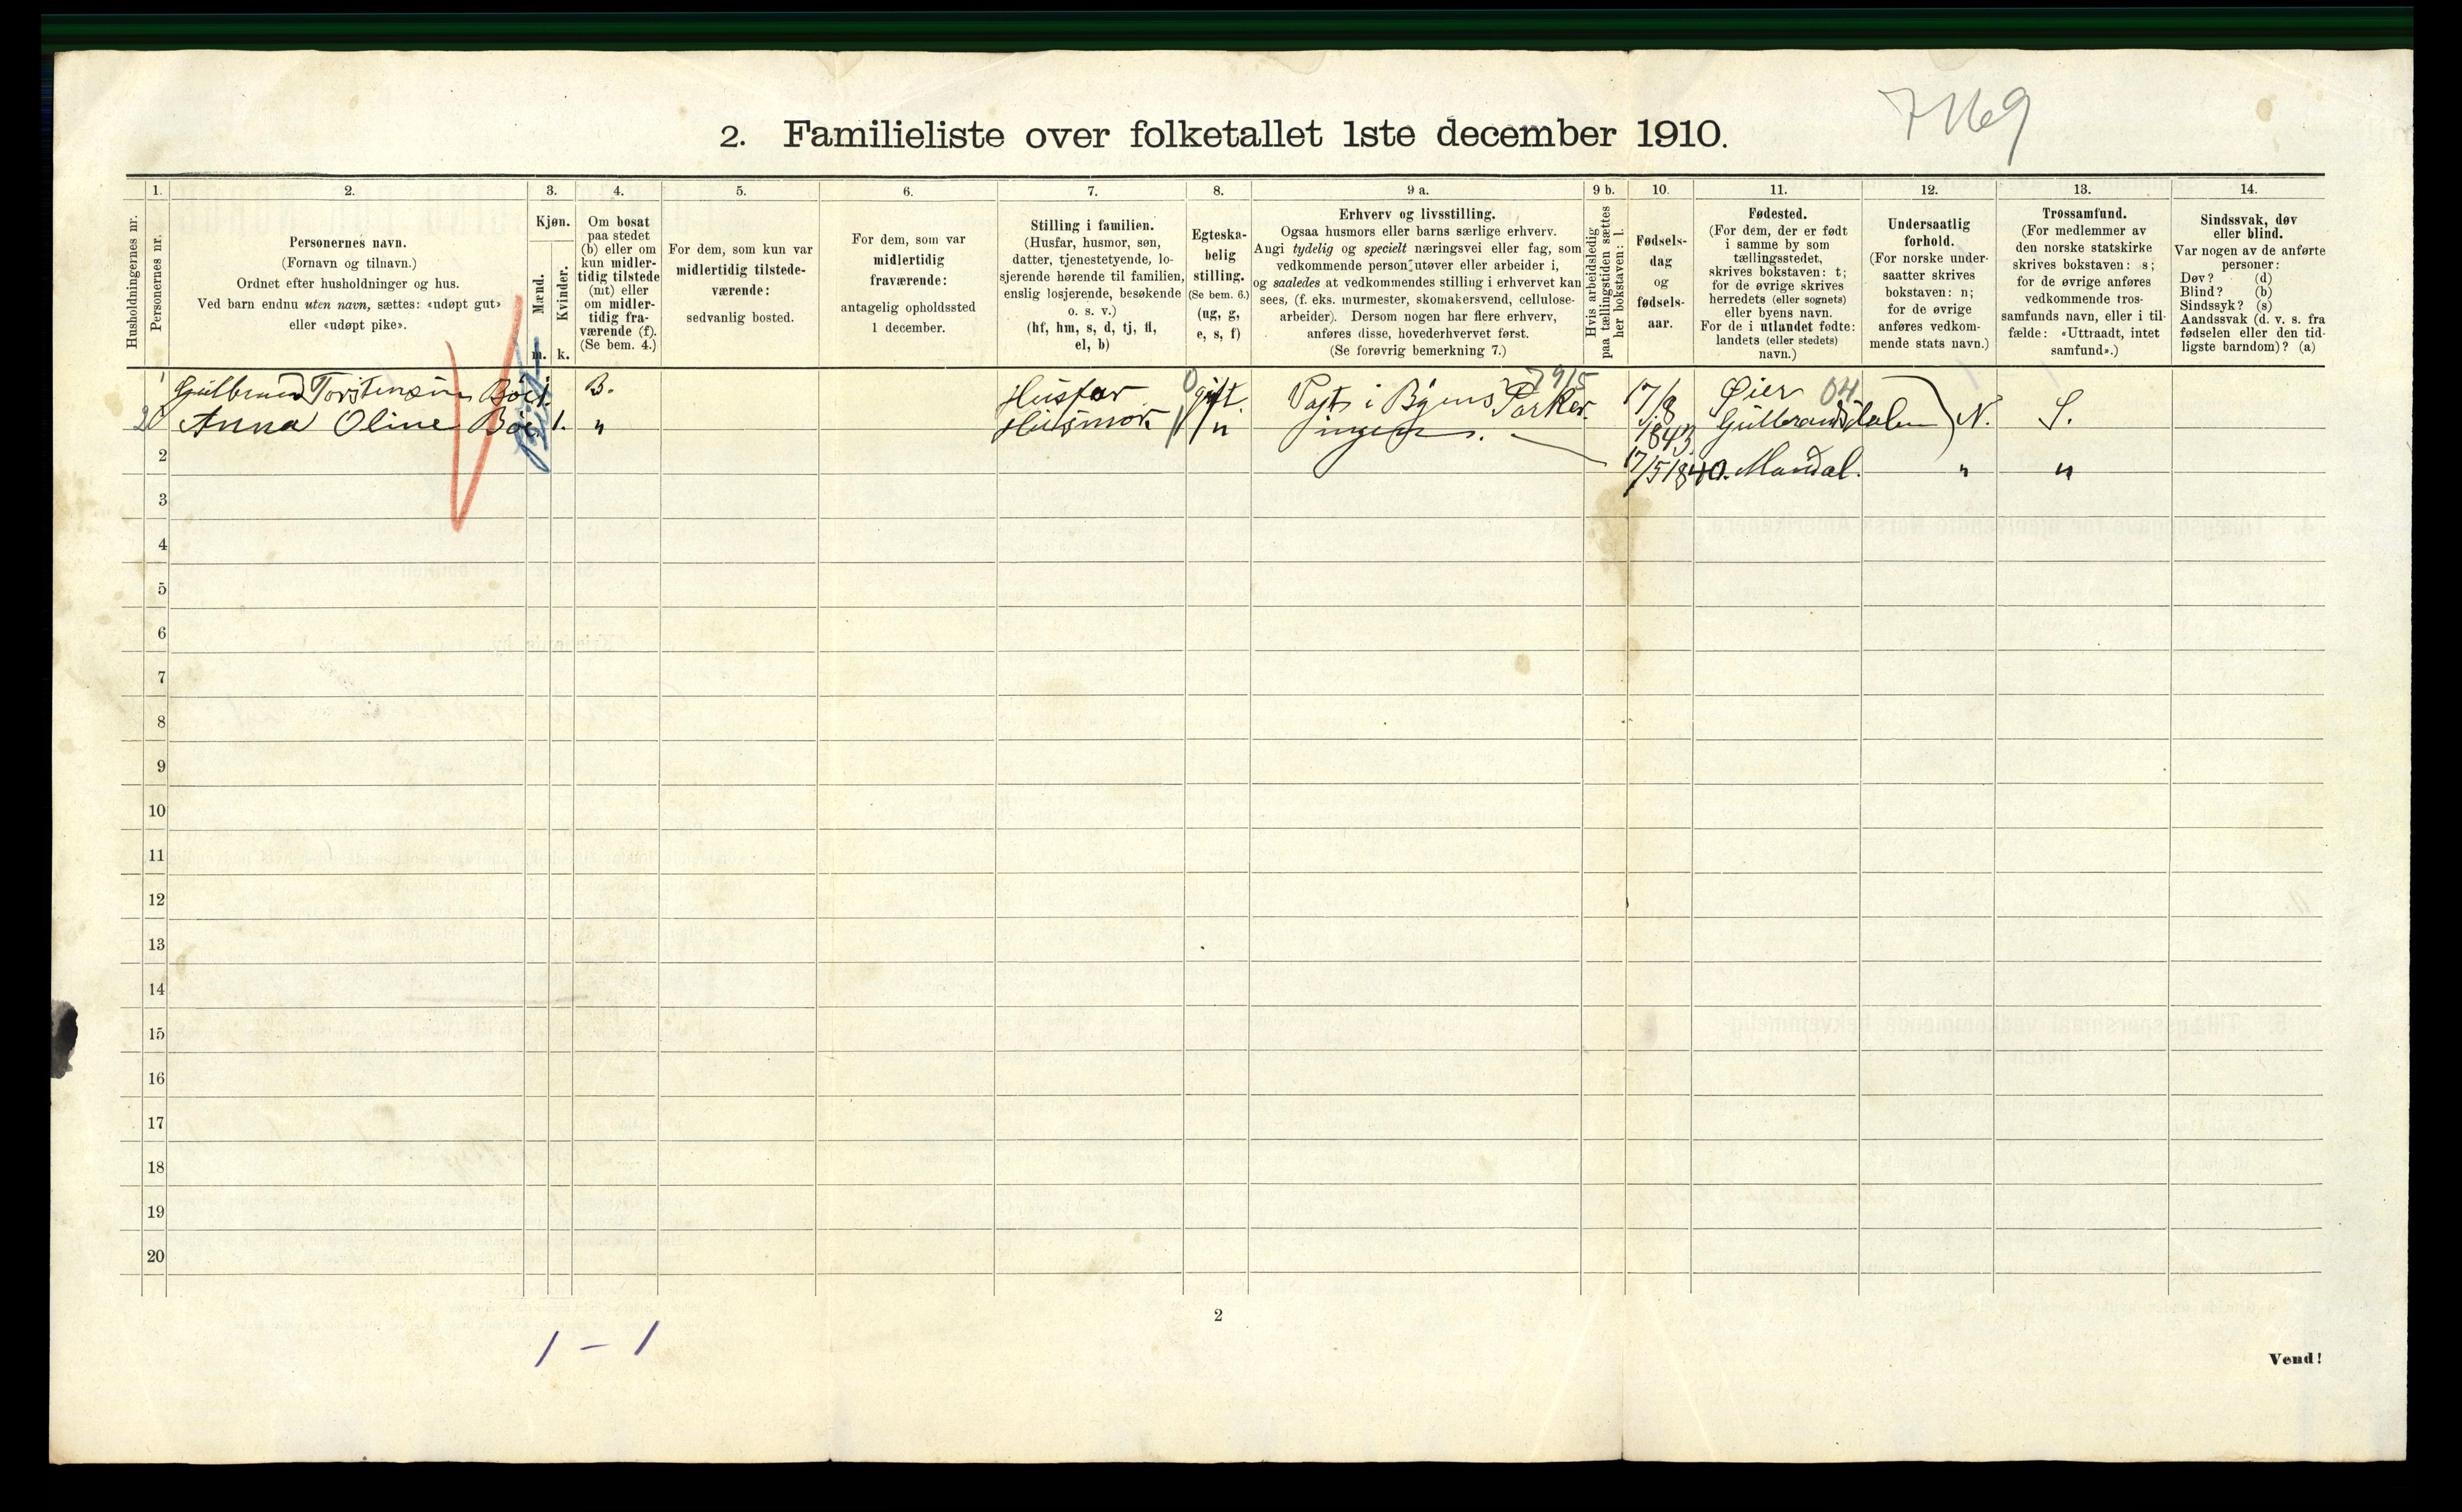 7169
2. Familieliste over folketallet 1ste december 1910.
1. 2. 3. 4. 5. 6. 7. 8. 9 a. 9 b. 10. 11. 12. 13. 14.
Husholdningernes nr.
Personernes nr.
Personernes navn.
(Fornavn og tilnavn.)
Ordnet efter husholdninger og hus.
Ved barn endnu uten navn, sættes: «udøpt gut»
eller «udøpt pike».
Kjøn.
Mænd.
Kvinder.
m. k.
Om bosat
paa stedet
(b) eller om
kun midler-
tidig tilstede
(mt) eller
om midler-
tidig fra-
værende (f).
(Se bem. 4.)
For dem, som kun var
midlertidig tilstede-
værende:
sedvanlig bosted.
For dem, som var
midlertidig
fraværende:
antagelig opholdssted
1 december.
Stilling i familien.
(Husfar, husmor, søn,
datter, tjenestetyende, lo-
sjerende hørende til familien,
enslig losjerende, besøkende
o. s. v.)
(hf, hm, s, d, tj, fl,
el, b)
Egteska-
belig
stilling.
(Se bem. 6.)
(ug, g,
e, s, f)
Erhverv og livsstilling.
Ogsaa husmors eller barns særlige erhverv.
Angi tydelig og specielt næringsvei eller fag, som
vedkommende person utøver eller arbeider i,
og saaledes at vedkommendes stilling i erhvervet kan
sees, (f. eks. murmester, skomakersvend, cellulose-
arbeider). Dersom nogen har flere erhverv,
anføres disse, hovederhvervet først.
(Se forøvrig bemerkning 7.)
Hvis arbeidsledig
paa tællingstiden sættes
her bokstaven: l.
Fødsels-
dag
og
fødsels-
aar.
Fødested.
(For dem, der er født
i samme by som
tællingsstedet,
skrives bokstaven: t;
for de øvrige skrives
herredets (eller sognets)
eller byens navn.
For de i utlandet fødte:
landets (eller stedets)
navn.)
Undersaatlig
forhold.
(For norske under-
saatter skrives
bokstaven: n;
for de øvrige
anføres vedkom-
mende stats navn.)
Trossamfund.
(For medlemmer av
den norske statskirke
skrives bokstaven: s;
for de øvrige anføres
vedkommende tros-
samfunds navn, eller i til-
fælde: «Uttraadt, intet
samfund».)
Sindssvak, døv
eller blind.
Var nogen av de anførte
personer:
Døv? (d)
Blind? (b)
Sindssyk? (s)
Aandssvak (d. v. s. fra
fødselen eller den tid-
ligste barndom)? (a)
1 Gulbrand Torstensøn Böe 1. B. Husfar 0 gift. i Byens Parker. 17/8 Øier 04
1843 Gulbrandsdalen N. S.
2 Anna Oline Böe 1. " Husmor " ingen.
17/5 1840. Mandal. " "
2
3
4
5
6
7
8
9
10
11
12
13
14
15
16
17
18
19
20
2
1 - 1
Vend!